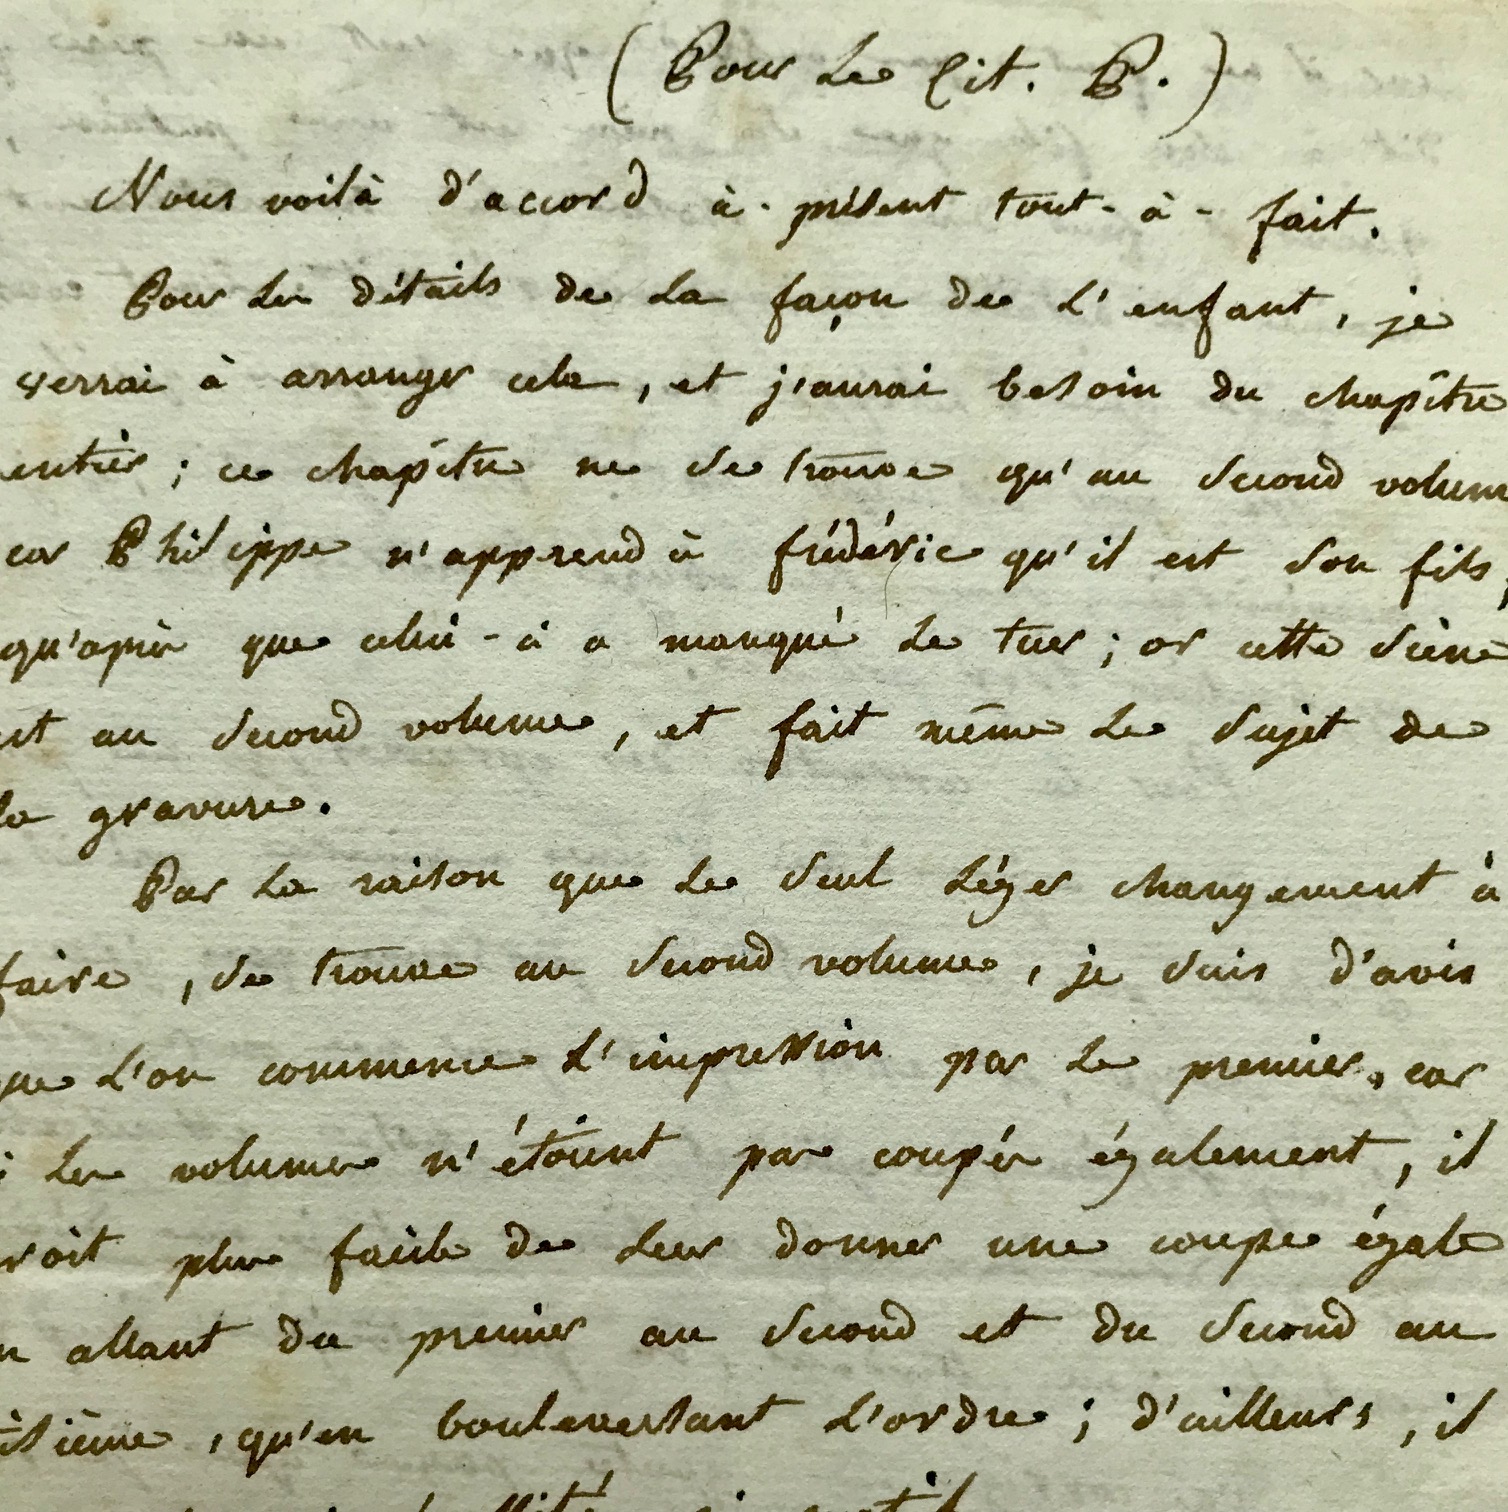 (Pour le Cit. P.)
Nous voilà d'accord à-présent tout-à-fait.
Pour les détails de la façon de l'enfant, je
verrai à arranger cela, et j'aurai besoin du chapître
entier ; ce chapître ne se trouve qu'au second volum
car Philippe n'apprend à frédéric qu'il est son fils,
qu'après que celui-ci a manqué le tuer ; or cette scène
est au second volume, et fait même le sujet de
la gravure.
Par la raison que le seul léger changement à
faire, se trouve au second volume, je suis d'avis
que l'on commence l'impression par le premier, car
si les volumes n'étoient pas coupés également, il
roit plus facile de leur donner une coupe égale
n allant du premier au second et du second au
isième, qu'en bouleversant l'ordre ; d'ailleurs, il